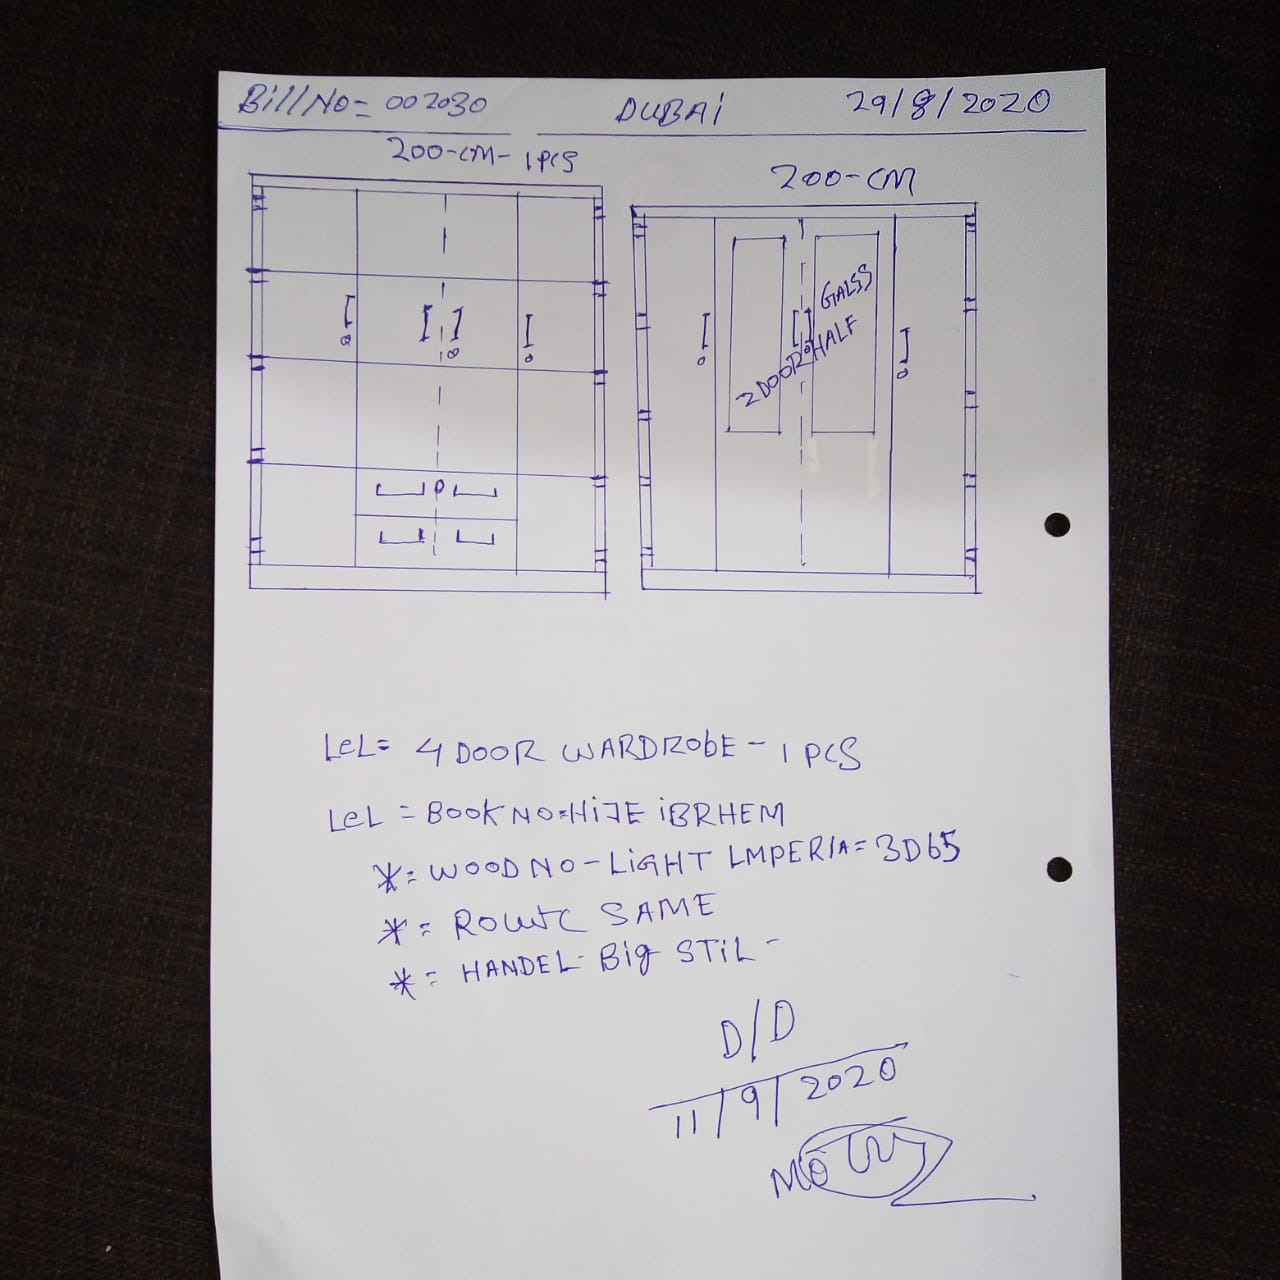 Bill No= 002030 DUBAi 29/8/2020
200-CM- 1 PCS
200-CM
GALSS
2 DOOR HALF
LeL= 4 DOOR WARDROBE - 1 PCS
LeL = BOOK NO=HiJE iBRHEM
*= WOOD NO - LiGHT LMPERIA= 3D65
*= SAME
*= HANDEL- Big STiL -
D/D
11/9/2020